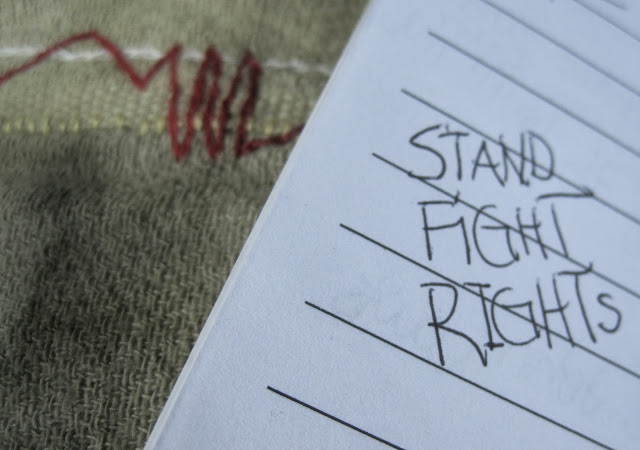 STAND
FIGHT
RIGHTS